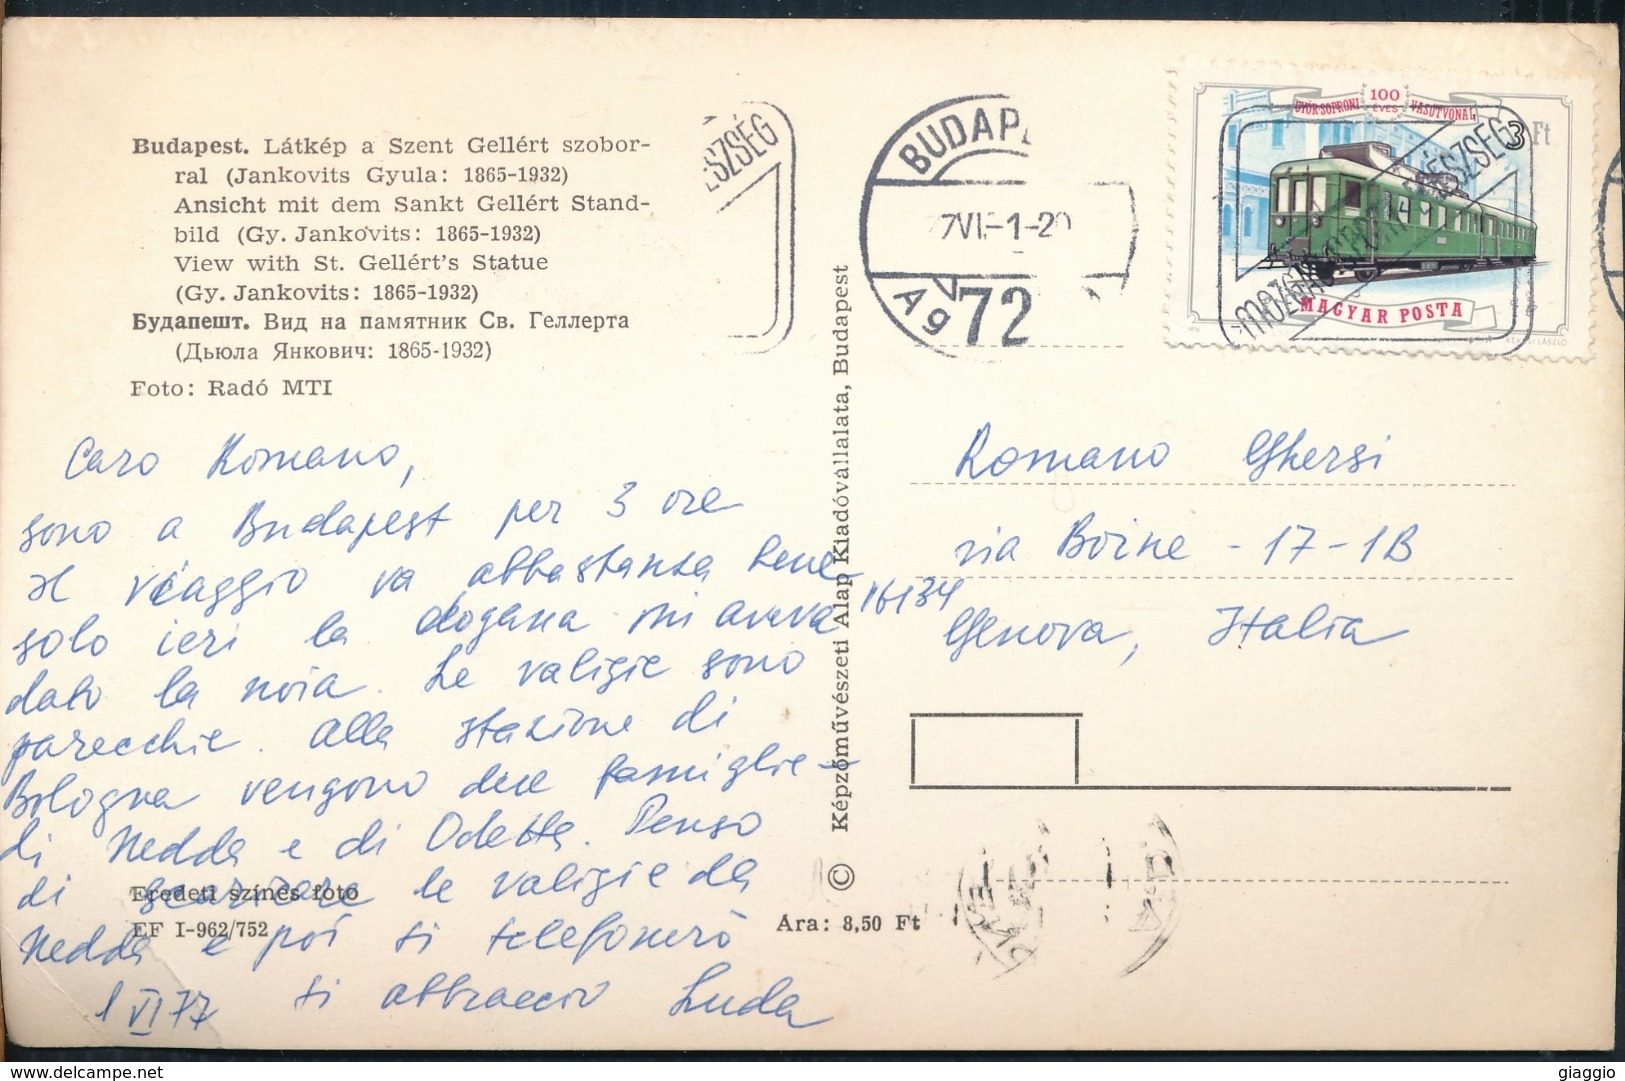 Budapest. Látkép a Szent Gellért szobor-
ral (Jankovits Gyula: 1865-1932)
Ansicht mit dem Sankt Gellért Stand-
bild (Gy. Jankovits: 1865-1932)
View with St. Gellért's Statue
(Gy. Jankovits: 1865-1932)
Будапешт. Вид на памятник Св. Геллерта
(Дьюла Янкович: 1865-1932)
Foto: Radó MTI
Caro Romano,
sono a Budapest per 3 ore
Il viaggio va abbastanza bene
solo ieri la dogana mi aveva
dato la noia. Le valigie sono
parecchie. Alla stazione di
Bologna vengono due famiglie -
di Nedda e di Odetta. Penso
di scaricare le valigie da
Nedda e poi ti telefonerò
ti abbraccio Luda
1 VI 77
Eredeti színes fotó
EF I-962/752
Ára: 8,50 Ft
© Képzőművészeti Alap Kiadóvállalata, Budapest
ÉSZSÉG
BUDAP
7VI-1-20
72
GYŐR-SOPRONI 100 ÉVES VASÚTVONAL
3 Ft
MAGYAR POSTA
Romano Ghersi
via Boine - 17-1B
16134
Genova, Italia
giaggio